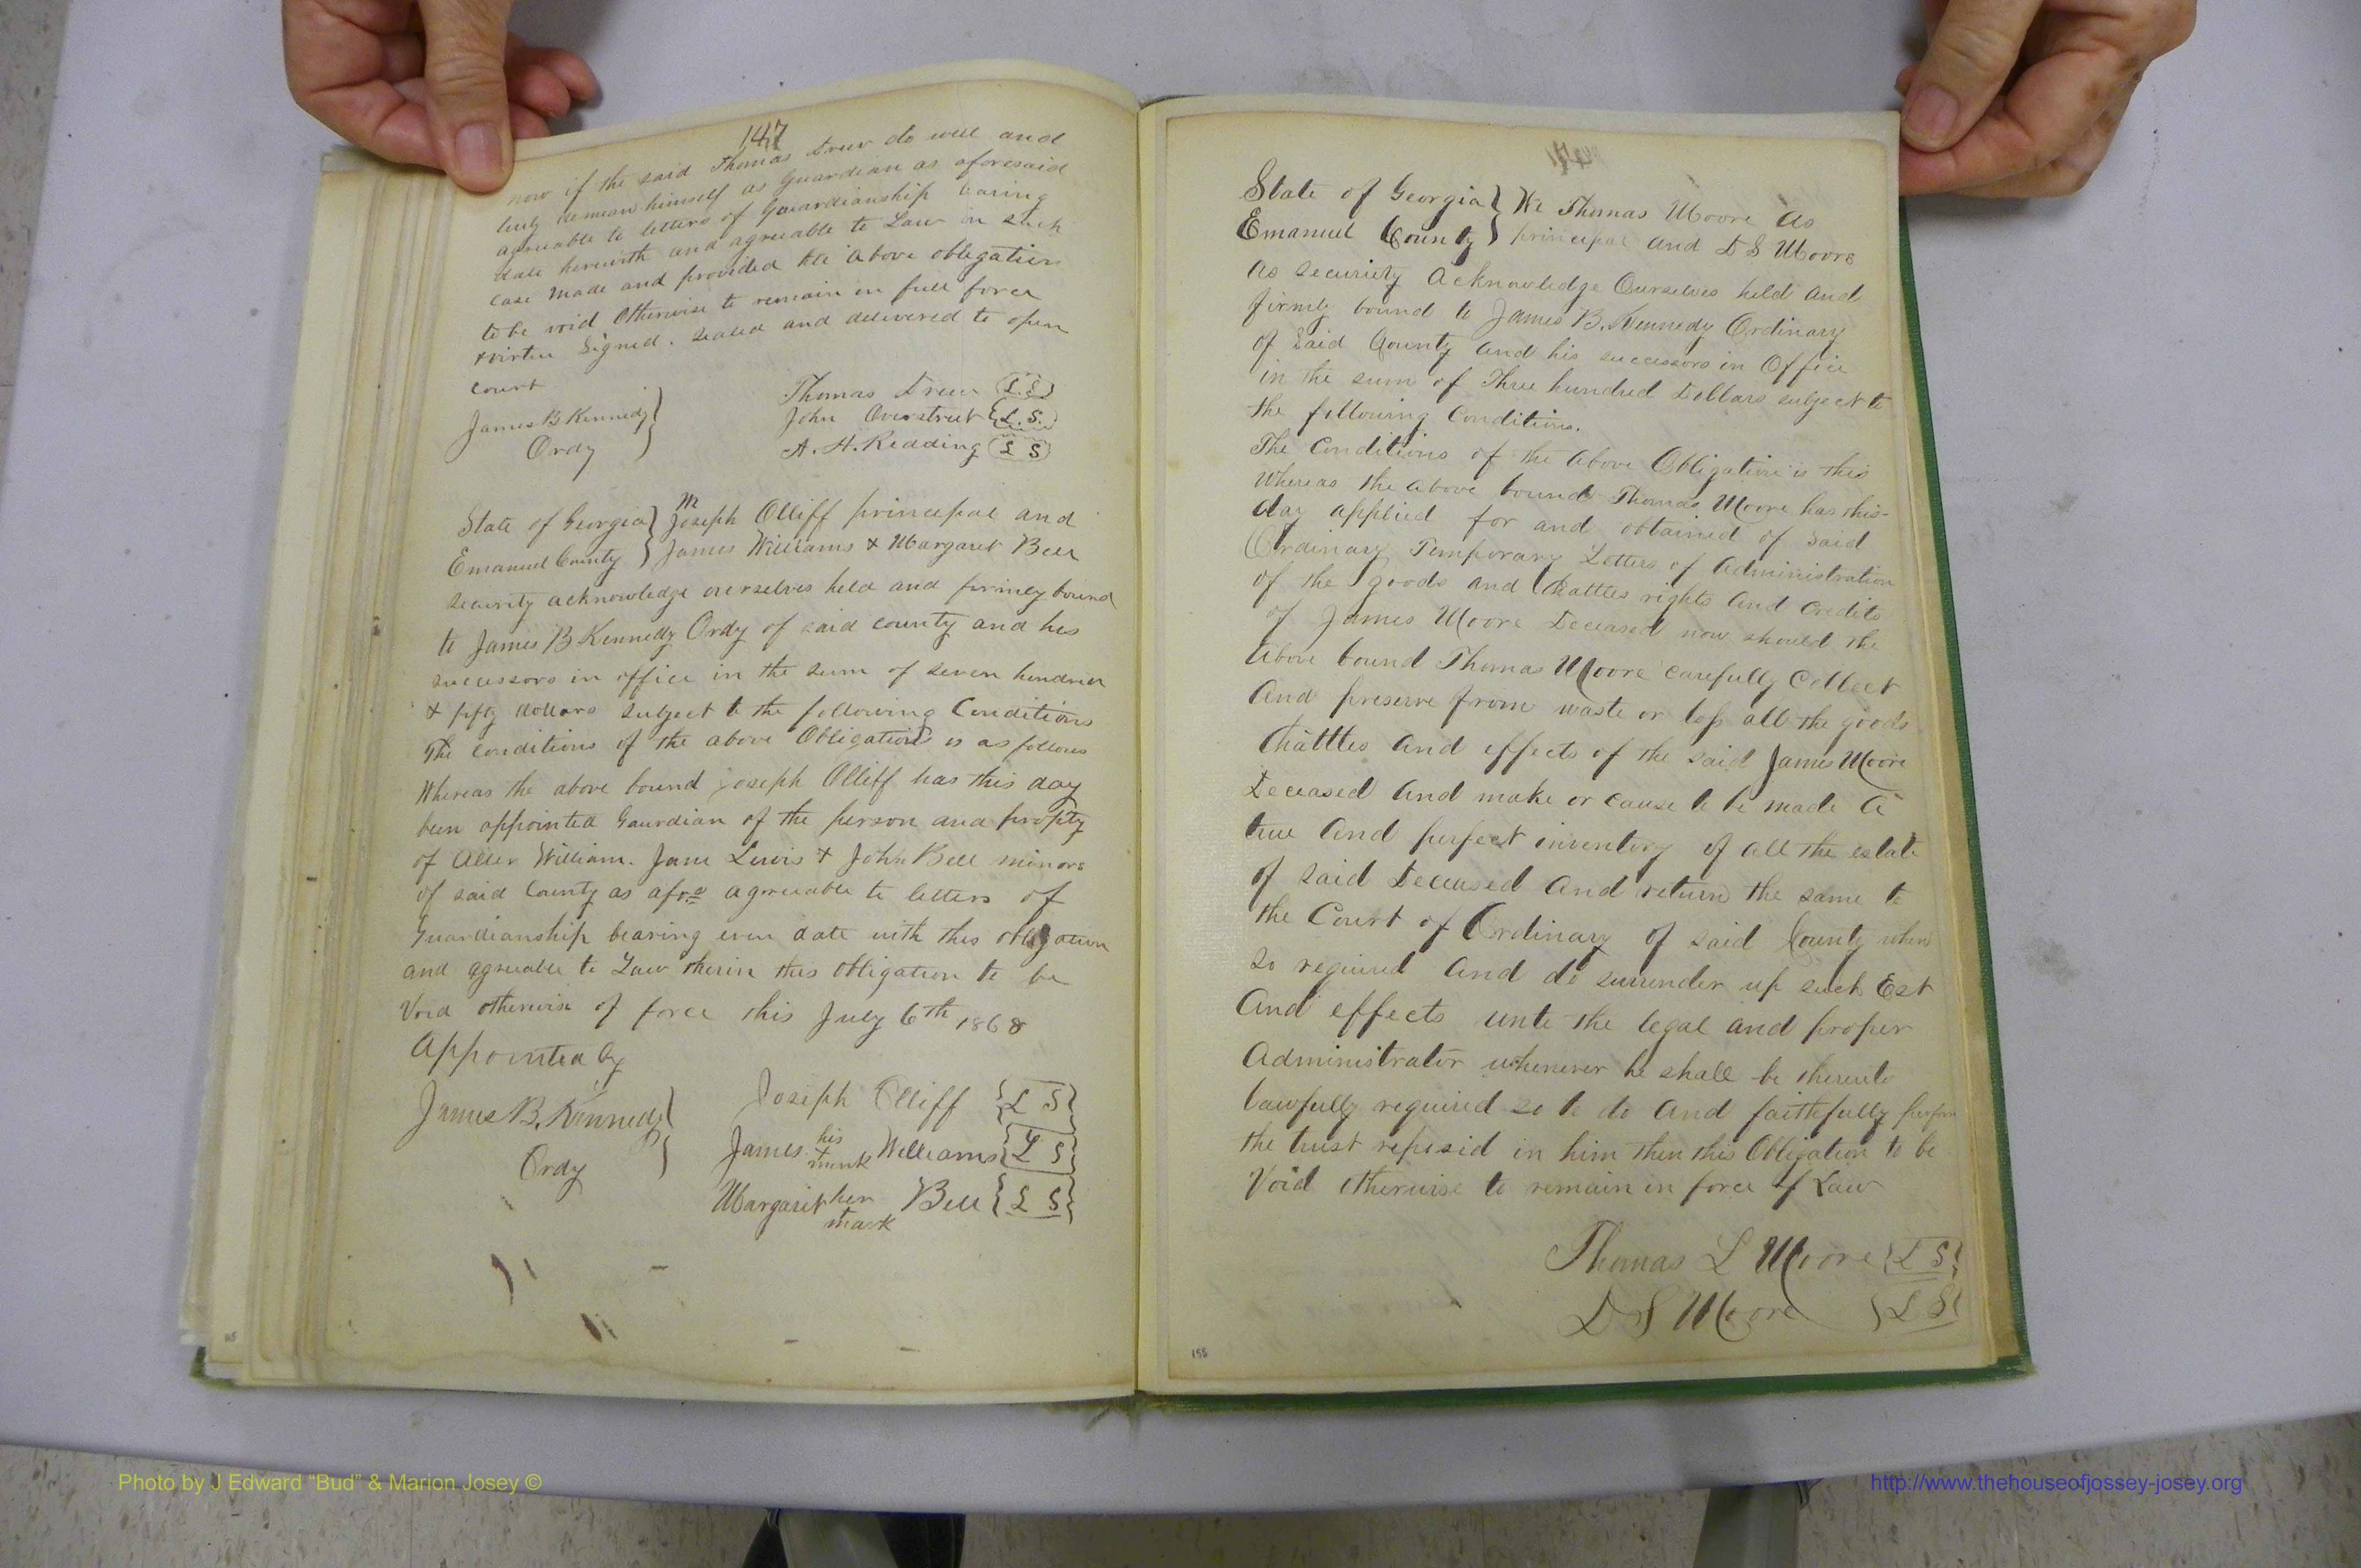 147
now if the said Thomas Drew do well and
truly demean himself as Guardian as aforesaid
agreuable to letters of Gauardianship baring
date herewith and agreuable to Law in such
case made and provided the above obligation
to be void otherwise to remain in full force
& virtue Signed. sealed and delivered to open
court
Thomas Drew L.S.
James B Kennedy
John Overstreet L.S.
Ordy
A. H. Redding L S
State of Georgia } We Joseph Olliff principal and
Emanuel County } James Williams & Margaret Bell
security acknowledge ourselves held and firmly bound
to James B Kennedy Ordy of said county and his
successors in office in the sum of seven hundred
& fifty dollars subject to the following Conditions
The conditions of the above Obligation is as follows
Whereas the above bound Joseph Olliff has this day
been appointed Gaurdian of the person and propty
of William. Jane Lewis & John Bell minors
of said County as afo agreuable to letters of
Guardianship bearing even date with this obligation
and agreuable to Law therin this obligation to be
Void otherwise of force this July 6th 1868
Appointed by
James B. Kennedy
Ordy
Joseph Olliff {L S}
James his mark Williams {L S}
Margaret her mark Bell {L S}
State of Georgia } We Thomas Moore as
Emanuel County } principal and D S Moore
as security acknowledge Ourselves held and
firmly bound to James B. Kennedy Ordinary
of Said County and his successors in Office
in the sum of Three hundred Dollars subject to
the following Conditions.
The Conditions of the above Obligation is this
Whereas the above bound Thomas Moore has this
day applied for and obtained of said
Ordinary Temporary Letters of Administration
of the goods and Chattles rights and credits
of James Moore Deceased now should the
above bound Thomas Moore carefully Collect
and preserve from waste or loss all the goods
Chattles and effects of the said James Moore
Deceased and make or cause to be made a
true and perfect inventory of all the estate
of said Deceased and return the same to
the Court of Ordinary of said County when
so required and do surrender up such Est
and effects unto the legal and proper
Administrator whenever he shall be thereunto
lawfully required so to do and faithfully
the trust reposid in him then this Obligation to be
Void otherwise to remain in force of Law
Thomas L Moore {L S}
D S Moore {L S}
155
Photo by J Edward “Bud” & Marion Josey ©
http://www.thehouseofjossey-josey.org